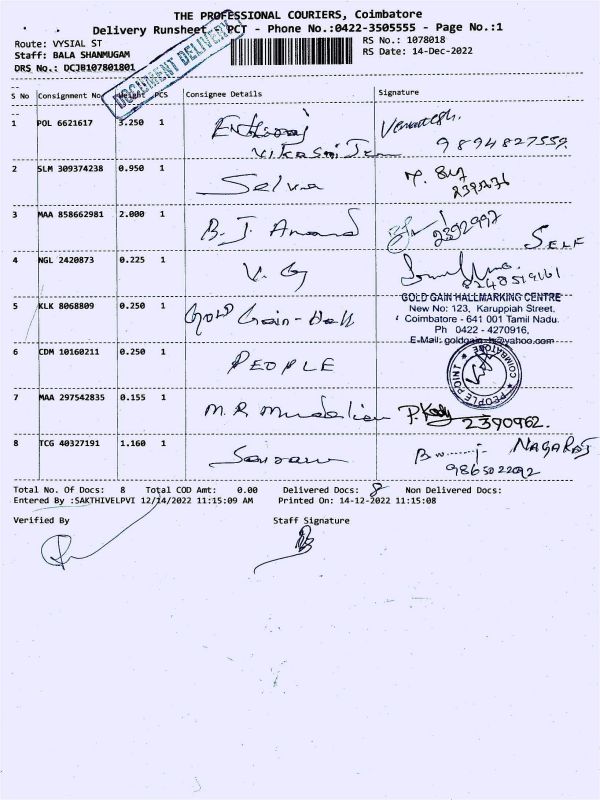 THE PROFESSIONAL COURIERS, Coimbatore
Delivery Runsheet - PCT - Phone No.:0422-3505555 - Page No.:1
Route: VYSIAL ST
RS No.: 1078018
Staff: BALA SHANMUGAM
RS Date: 14-Dec-2022
DRS No.: DCJ0107801801
DOCUMENT DELIVERY
S No Consignment No Weight PCS Consignee Details Signature
1 POL 6621617 3.250 1 Venkatesh.
9894827559.
2 SLM 309374238 0.950 1 Selva
3 MAA 858662981 2.000 1 B. J. Anand 2392997
SELF
4 NGL 2420873 0.225 1 V. G
8248519161
5 KLK 8068809 0.250 1 Gold Gain-Hall
GOLD GAIN HALLMARKING CENTRE
New No: 123, Karuppiah Street,
Coimbatore - 641 001 Tamil Nadu.
Ph 0422 - 4270916,
6 CDM 10160211 0.250 1 PEOPLE
PEOPLE POINT COIMBATORE
7 MAA 297542835 0.155 1 M. R Mudaliar
2390962.
8 TCG 40327191 1.160 1 NAGARAJ
9865022092
Total No. Of Docs: 8 Total COD Amt: 0.00 Delivered Docs: 8 Non Delivered Docs:
Entered By :SAKTHIVELPVI 12/14/2022 11:15:09 AM Printed On: 14-12-2022 11:15:08
Verified By Staff Signature